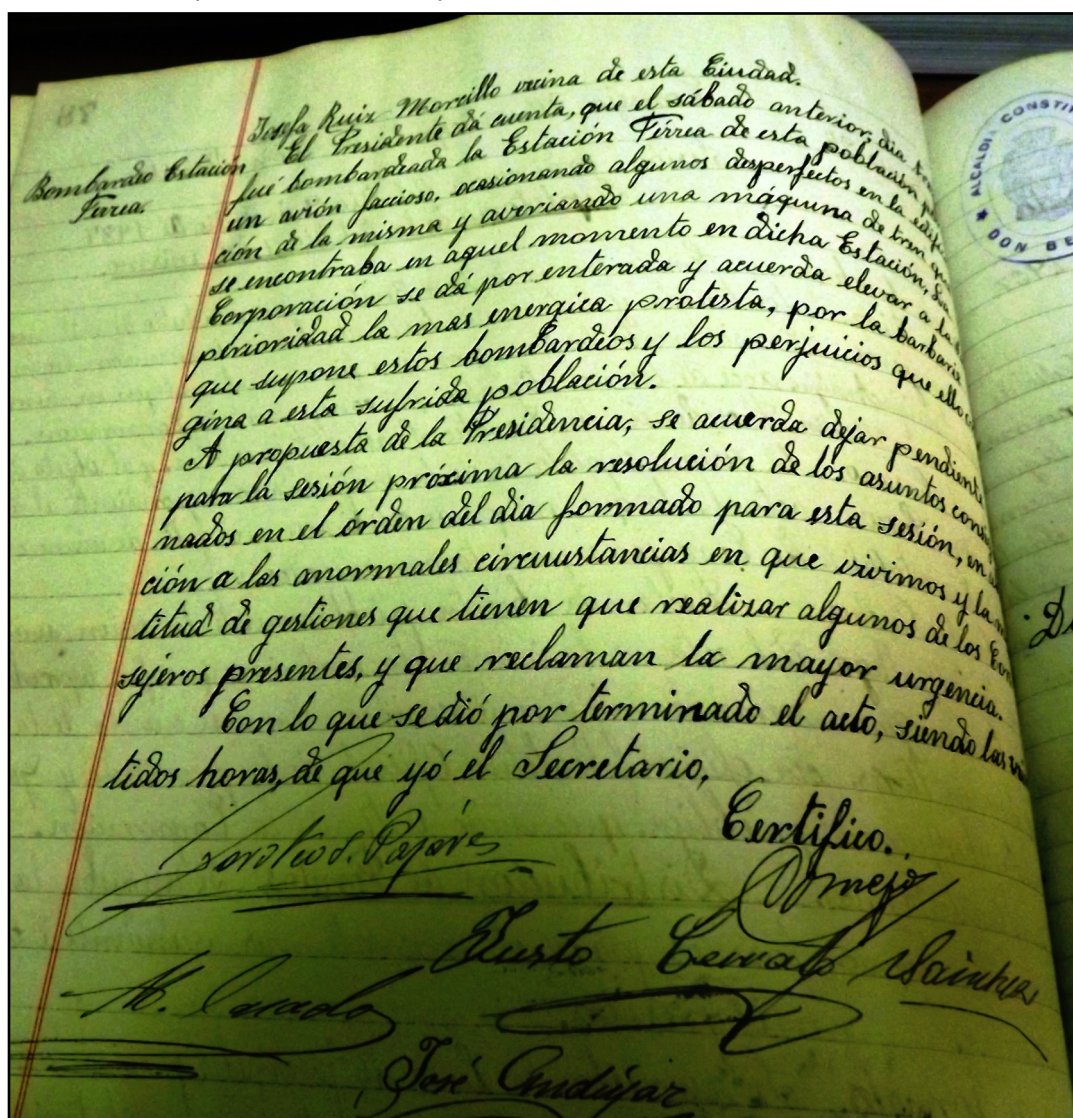 Josefa Ruiz Morcillo vecina de esta Ciudad.
Bombardeo Estación
Férrea.
El Presidente dá cuenta, que el sábado anterior, dia
fué bombardeada la Estación Férrea de esta población
un avión faccioso, ocasionando algunos desperfectos en la edifi
ción de la misma y averiando una máquina de tren qu
se encontraba en aquel momento en dicha Estación,
Corporación se dá por enterada y acuerda elevar a la
perioridad la mas energica protesta, por la barbarie
que supone estos bombardeos y los perjuicios que ello
gina a esta sufrida población.
A propuesta de la Presidencia, se acuerda dejar pendiente
para la sesión próxima la resolución de los asuntos consig
nados en el órden del dia formado para esta sesión, en
ción a las anormales circunstancias en que vivimos y la m
titud de gestiones que tienen que realizar algunos de los Con
sejeros presentes, y que reclaman la mayor urgencia.
Con lo que se dió por terminado el acto, siendo las
tidos horas, de que yó el Secretario,
Certifico.
Justo Sánchez
José Andújar
ALCALDIA CONSTI
DON BE